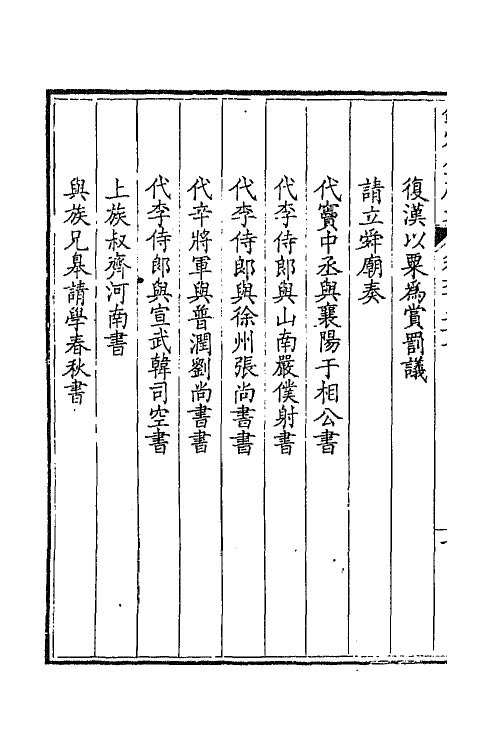 復漢以粟為賞罰議
請立舜廟奏
代竇中丞與襄陽于相公書
代李侍郎與山南嚴僕射書
代李侍郎與徐州張尚書書
代辛將軍與普潤劉尚書書
代李侍郎與宣武韓司空書
上族叔齊河南書
與族兄臯請學春秋書